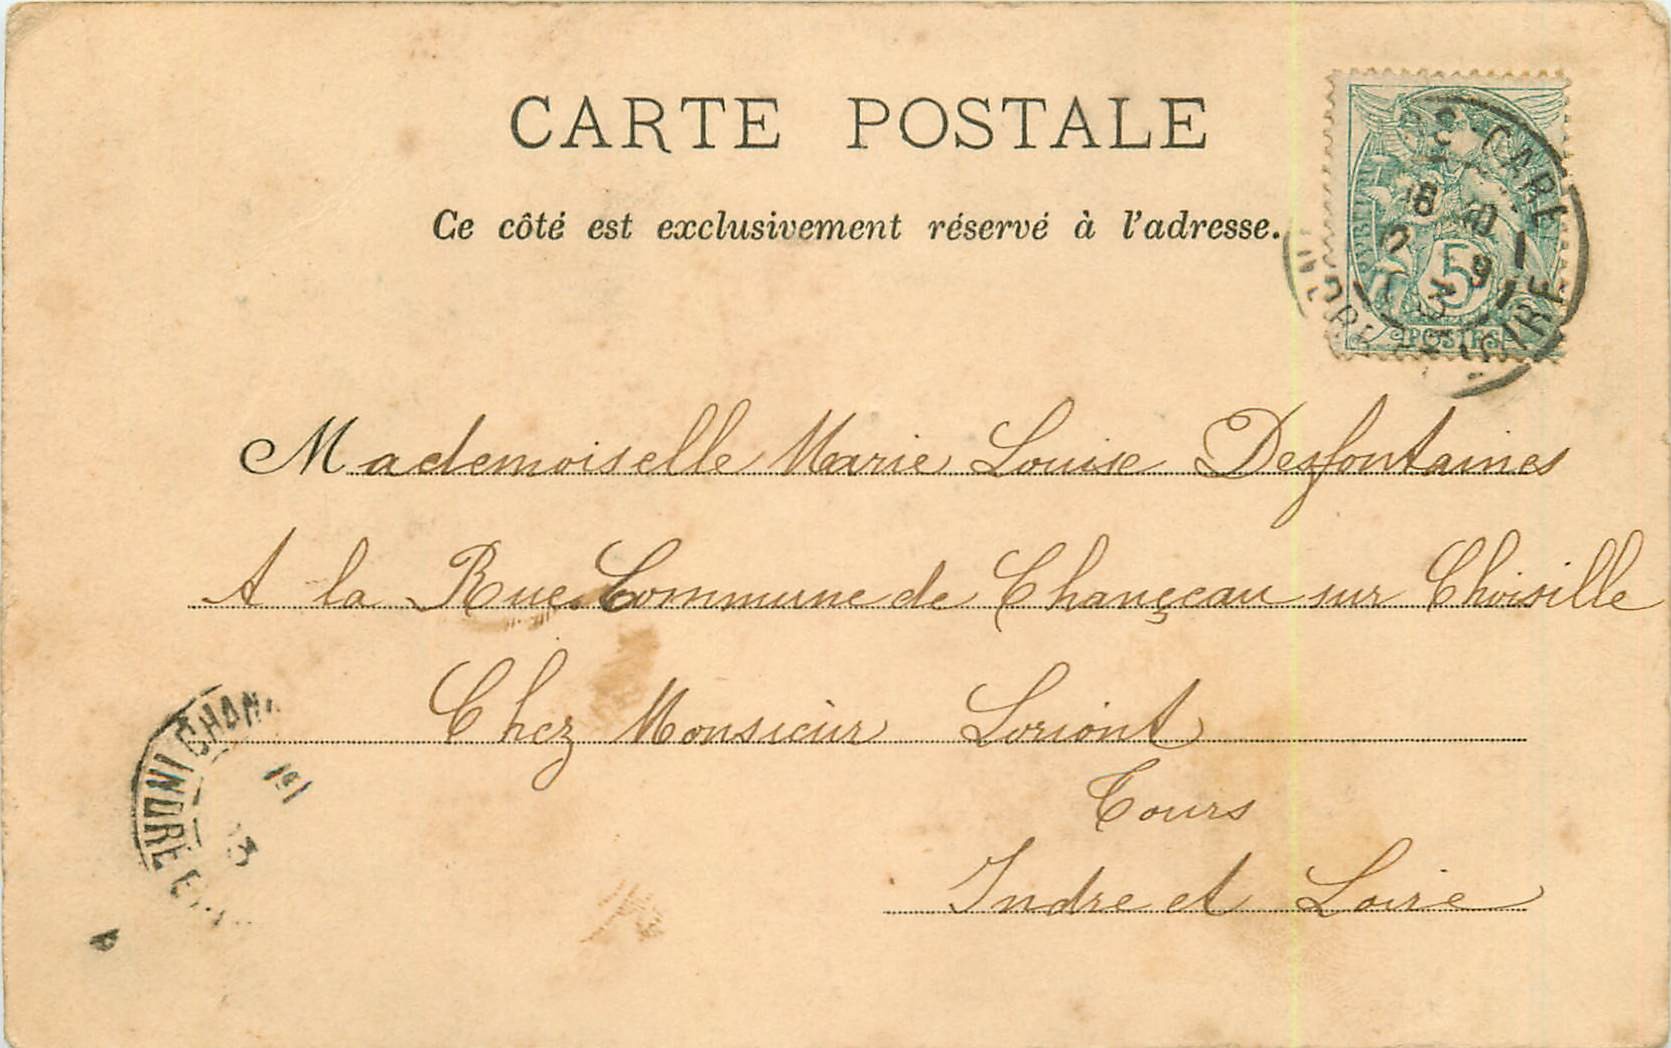 CARTE POSTALE
Ce côté est exclusivement réservé à l'adresse.
GARE
18 10
2 9
5
POSTES
INDRE ET LOIRE
Mademoiselle Marie Louise Desfontaines
A la Rue Commune de Chançeau sur Choisille
Chez Monsieur Loriont
Tours
Indre et Loire
CHAN
INDRE E